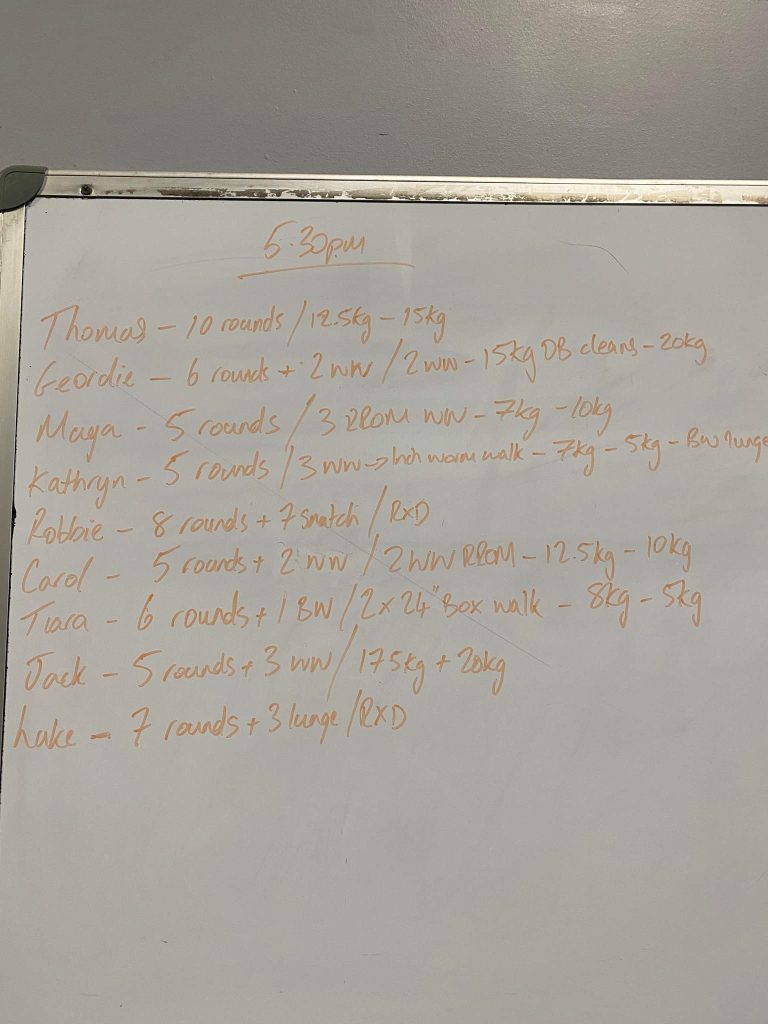 5.30pm
Thomas - 10 rounds / 12.5kg - 15kg
Geordie - 6 rounds + 2 WW / 2 WW - 15kg DB cleans - 20kg
Maya - 5 rounds / 3 RROM WW - 7kg - 10kg
Kathryn - 5 rounds / 3 WW → Inch worm walk - 7kg - 5kg - BW lunge
Robbie - 8 rounds + 7 snatch / RXD
Carol - 5 rounds + 2 WW / 2 WW RROM - 12.5kg - 10kg
Tiara - 6 rounds + 1 BW / 2 x 24" Box walk - 8kg - 5kg
Jack - 5 rounds + 3 WW / 17.5kg + 20kg
Luke - 7 rounds + 3 lunge / RXD